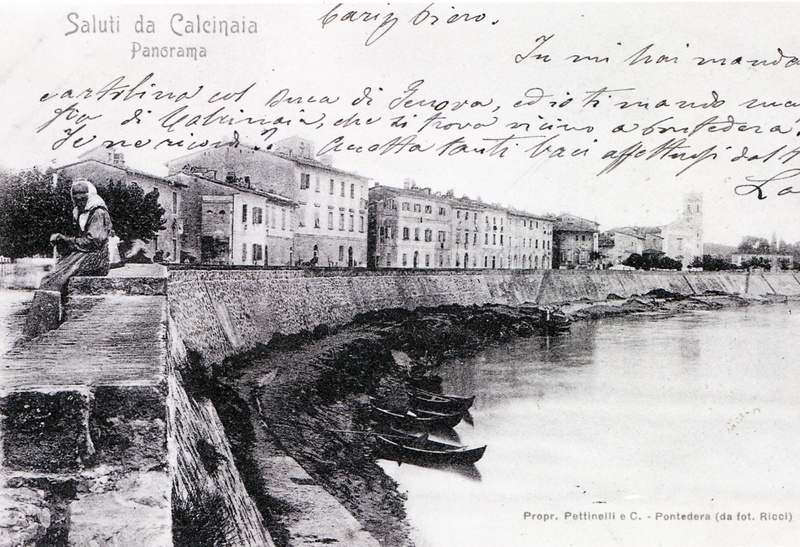 Saluti da Calcinaia
Panorama
Piero.
Tu mi hai manda
cartolina col Duca di Genova, ed io ti mando
di Calcinaia, che si trova vicino a Pontedera
Te ne ricordi? Accetta tanti baci affettuosi dal
Propr. Pettinelli e C. - Pontedera (da fot. Ricci)